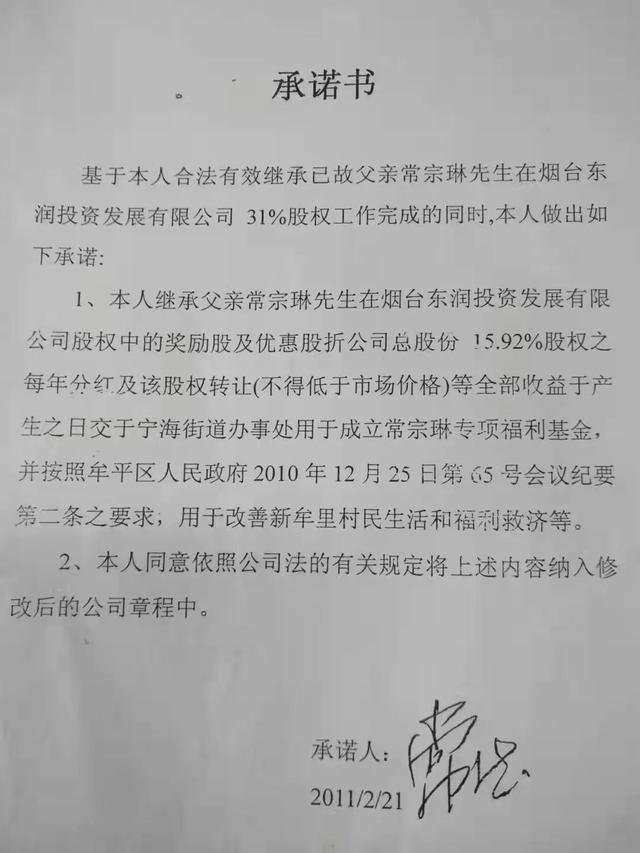 承诺书
基于本人合法有效继承已故父亲常宗琳先生在烟台东
润投资发展有限公司 31%股权工作完成的同时,本人做出如
下承诺:
1、本人继承父亲常宗琳先生在烟台东润投资发展有限
公司股权中的奖励股及优惠股折公司总股份 15.92%股权之
每年分红及该股权转让(不得低于市场价格)等全部收益于产
生之日交于宁海街道办事处用于成立常宗琳专项福利基金，
并按照牟平区人民政府 2010 年 12 月 25 日第 65 号会议纪要
第二条之要求，用于改善新牟里村民生活和福利救济等。
2、本人同意依照公司法的有关规定将上述内容纳入修
改后的公司章程中。
承诺人：常
2011/2/21